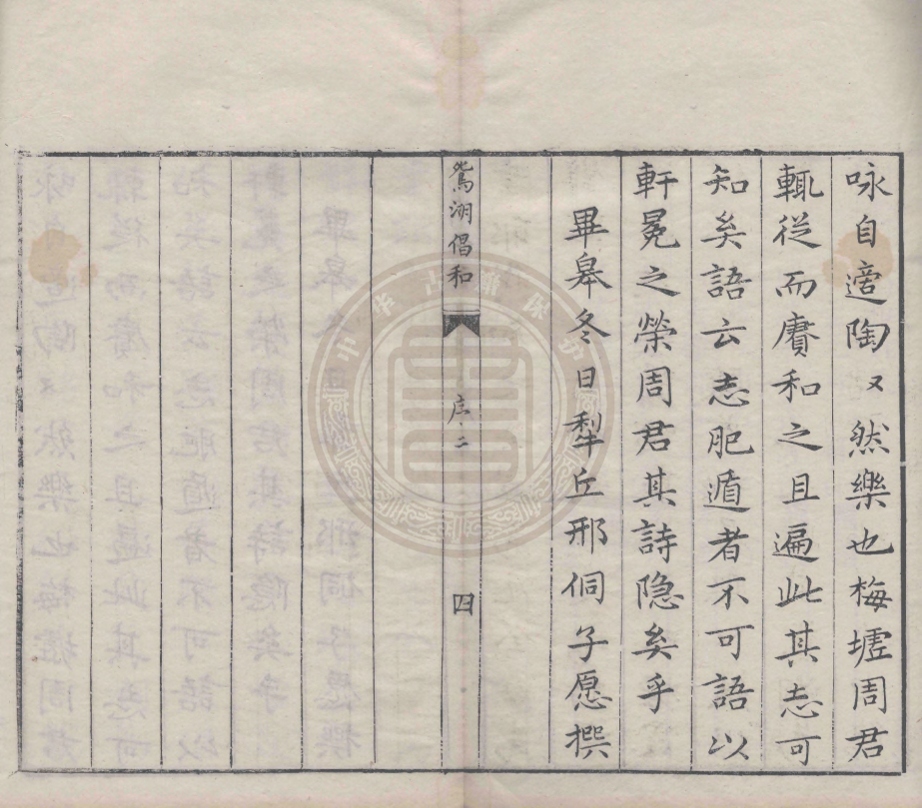 咏自適陶〻然樂也梅墟周君
輒從而賡和之且遍此其志可
知矣語云志肥遁者不可語以
軒冕之榮周君其詩隐矣乎
畢皋冬日犁丘邢侗子愿撰
鴛湖倡和 序二 四